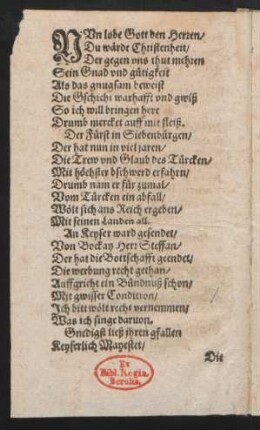 NUn lobe Gott den Herren/
Du würde Christenheit/
Der gegen vns thut mehren
Sein Gnad vnd gütigkeit
Als das gnugsam beweist
Die Gschicht warhafft vnd gwiß
So ich will bringen here
Drumb mercket auff mit fleiß.
Der Fürst in Siebenbürgen/
Der hat nun in viel jaren/
Die Trew vnd Glaub des Türcken/
Mit höchster bschwerd erfahrn/
Drumb nam er für zumal/
Vom Türcken ein abfall/
Wölt sich ans Reich ergeben/
Mit seinen Landen all.
An Keyser ward gesendet/
Von Bockay Herr Steffan/
Der hat die Bottschafft geendet/
Die werbung recht gethan/
Auffgricht ein Bündnuß schon/
Mit gwisser Condition/
Ich bitt wölt recht vernemmen/
Was ich singe daruon.
Gnedigst ließ ihren gfallen
Keyserlich Mayestet/
Die
Ex
Bibl. Regia
Berolin.